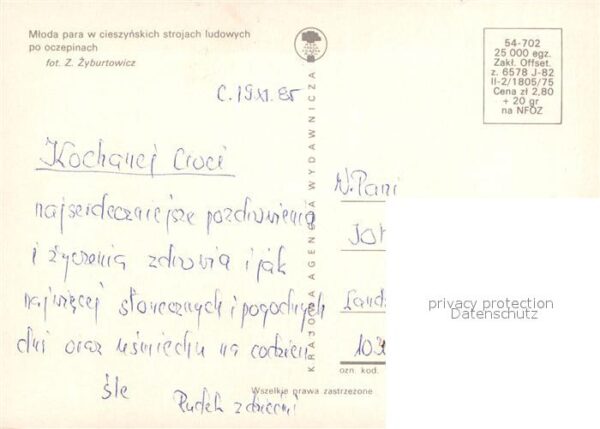 Młoda para w cieszyńskich strojach ludowych
po oczepinach
fot. Z. Żyburtowicz
54-702
25 000 egz.
Zakł. Offset.
z. 6578 J-82
II-2/1805/75
Cena zł 2,80
+ 20 gr
na NFOZ
C. 19 XI. 85
Kochanej Cioci
najserdeczniejsze pozdrowienia
i życzenia zdrowia i jak
najwięcej słonecznych i pogodnych
dni oraz uśmiechu na codzień
śle
Rudek z dziećmi
KRAJOWA AGENCJA WYDAWNICZA
W.Pani
Joh
Lands
ozn. kod.
Wszelkie prawa zastrzeżone
privacy protection
Datenschutz